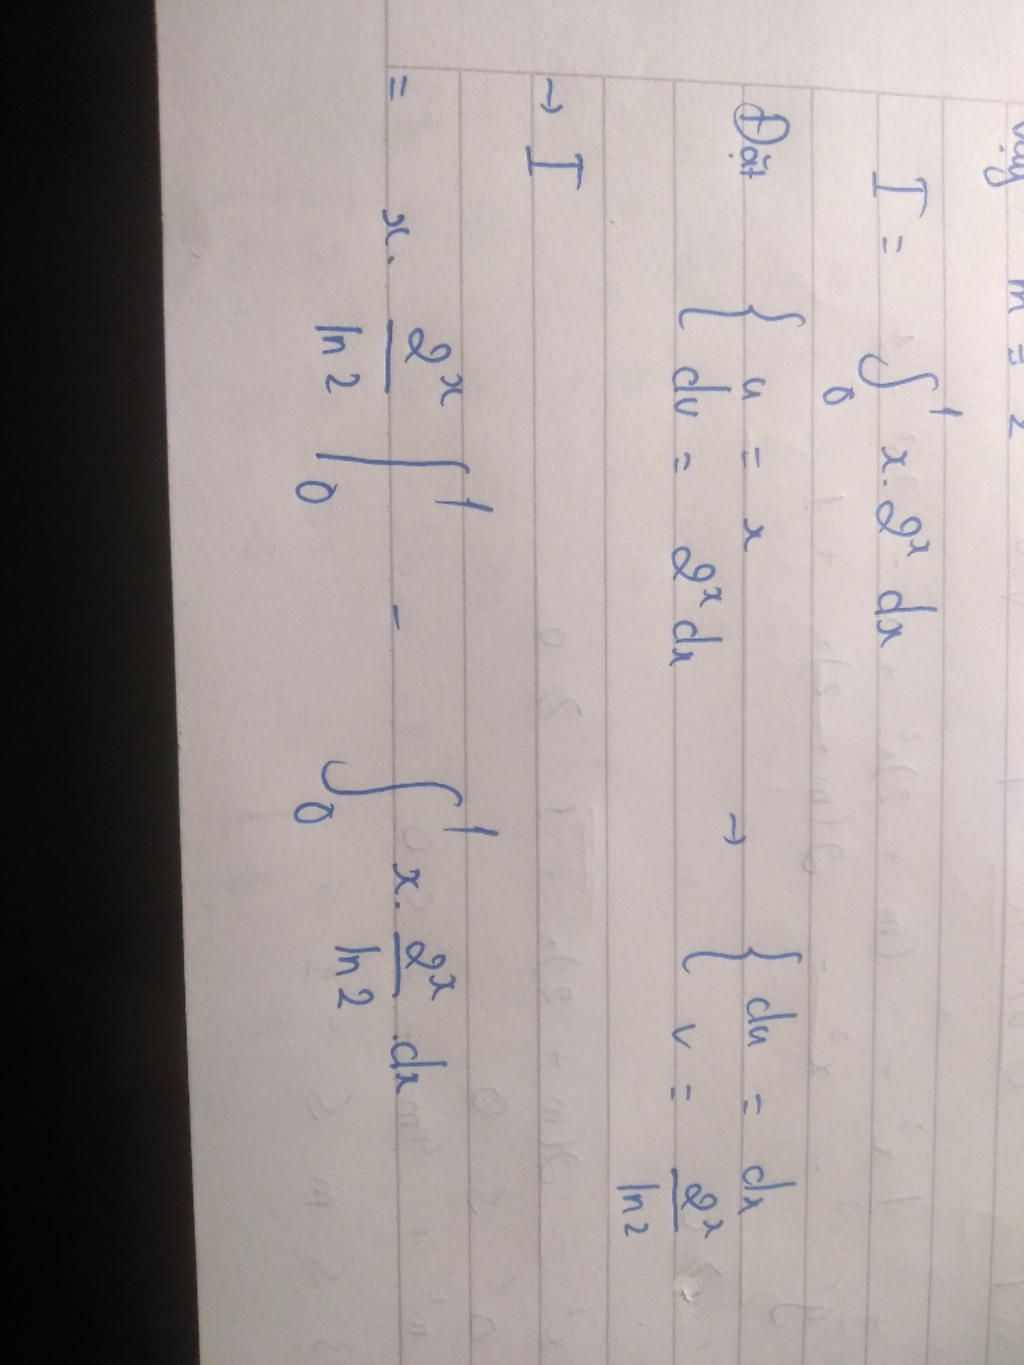 vậy m = 2
I = ∫₀¹ x.2ˣ dx
Đặt { u = x → { du = dx
{ dv = 2ˣ dx { v = 2ˣ/ln 2
→ I
= x. 2ˣ/ln 2 |₀¹ - ∫₀¹ x. 2ˣ/ln 2 .dx